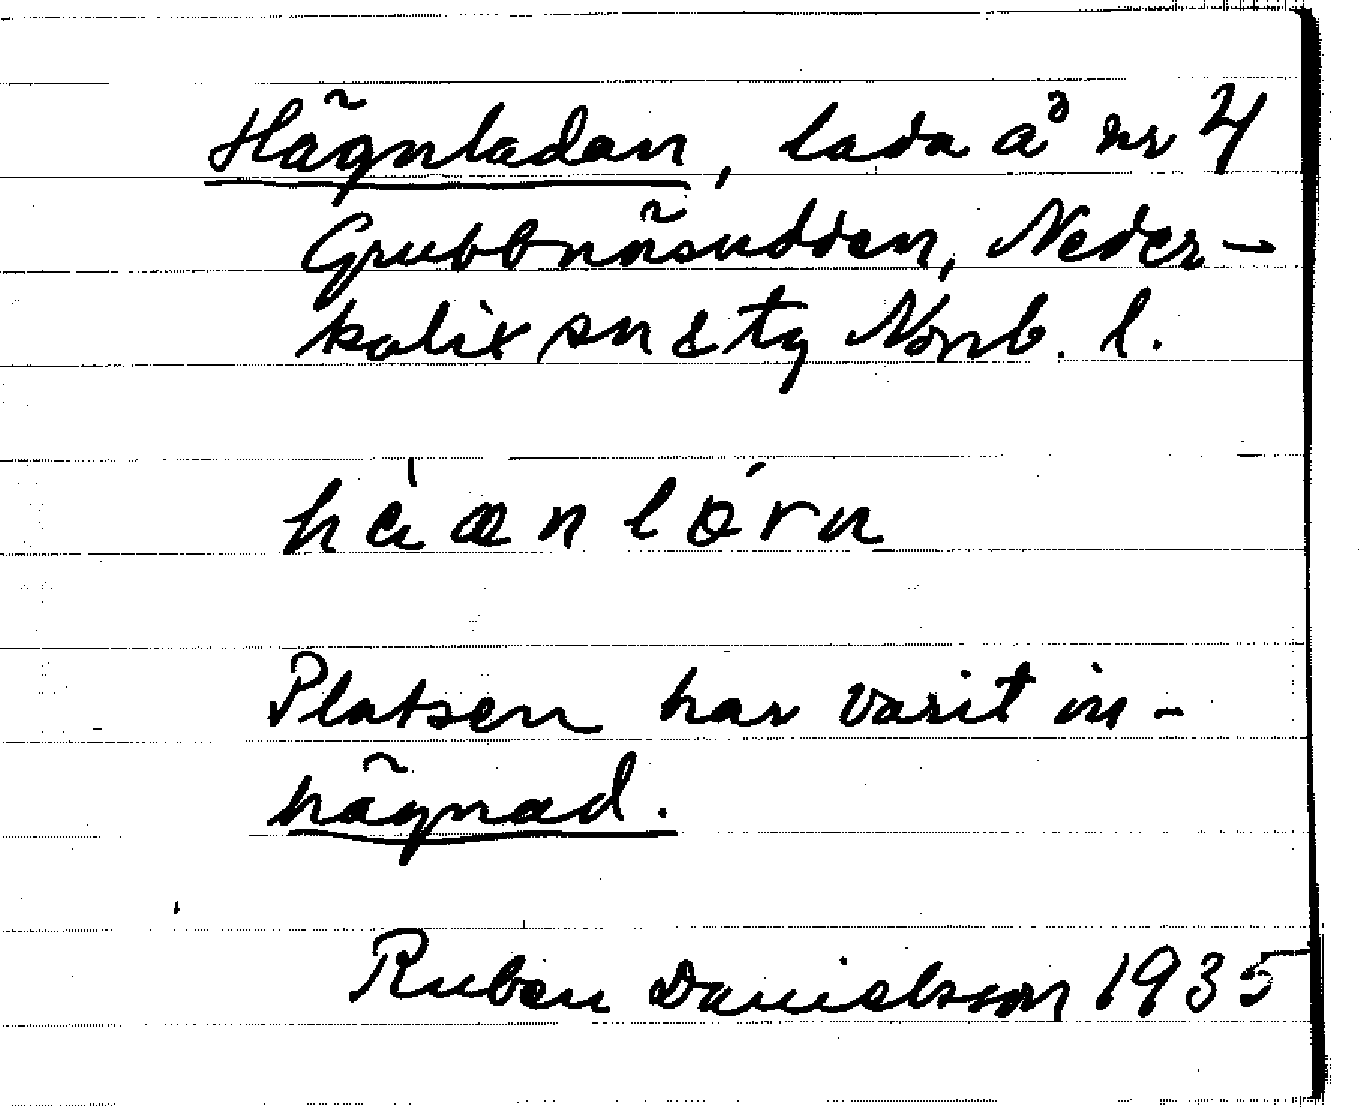 Hägnladan, lada å nr 4
Grubbnäsudden, Neder-
kalix sn & tg Norrb. l.
Platsen har varit in-
hägnad.
Ruben Danielsson 1935